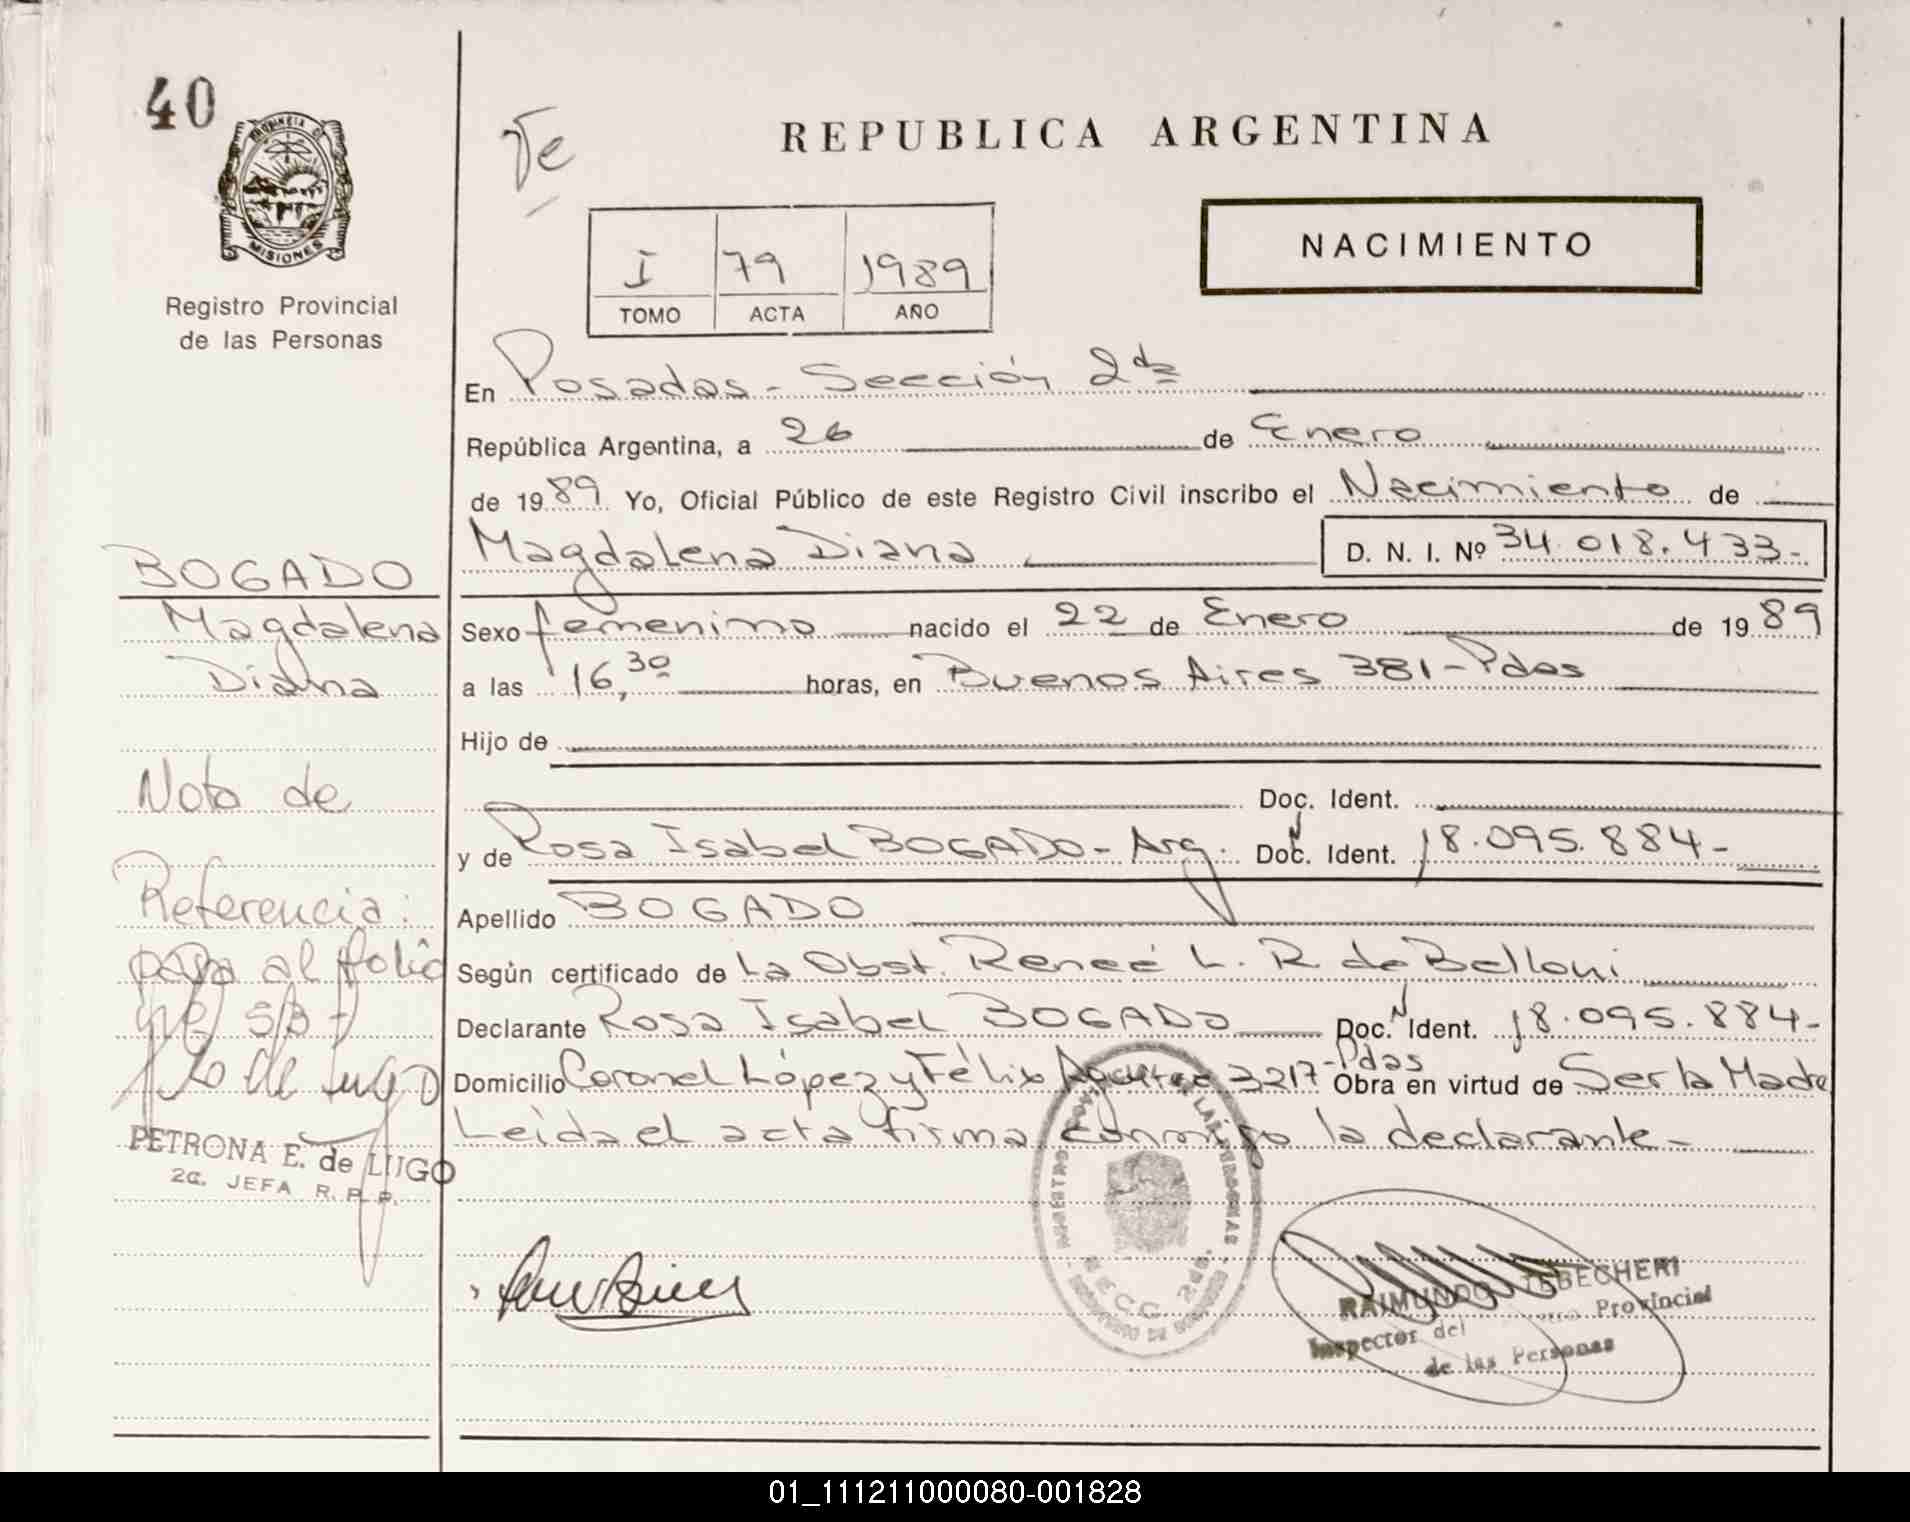 40
PROVINCIA DE
MISIONES
Registro Provincial
de las Personas
REPUBLICA ARGENTINA
NACIMIENTO
I 79 1989
TOMO ACTA AÑO
En Posadas - Sección 2da
República Argentina, a 26 de Enero
de 1989 Yo, Oficial Público de este Registro Civil inscribo el Nacimiento de
Magdalena Diana D. N. I. Nº 34.018.433-
Sexo femenino nacido el 22 de Enero de 1989
a las 16,30 horas, en Buenos Aires 381-Pdas
Hijo de
Doc. Ident.
y de Rosa Isabel BOGADO - Arg. Doc. Ident. 18.095.884-
Apellido BOGADO
Según certificado de La Obst. Reneé L. R. de Belloni
Declarante Rosa Isabel BOGADO Doc. Ident. 18.095.884-
Domicilio Coronel López y Félix Aguirre 3217-Pdas Obra en virtud de Ser la Madre
Leida el acta firma conmigo la declarante-
BOGADO
Magdalena
Diana
Nota de
Referencia:
pasa al folio
PETRONA E. de LUGO
2a. JEFA R. P. P.
SECC. 2da.
RAIMUNDO TEBECHERI
Inspector del Provincial
de las Personas
01_111211000080-001828